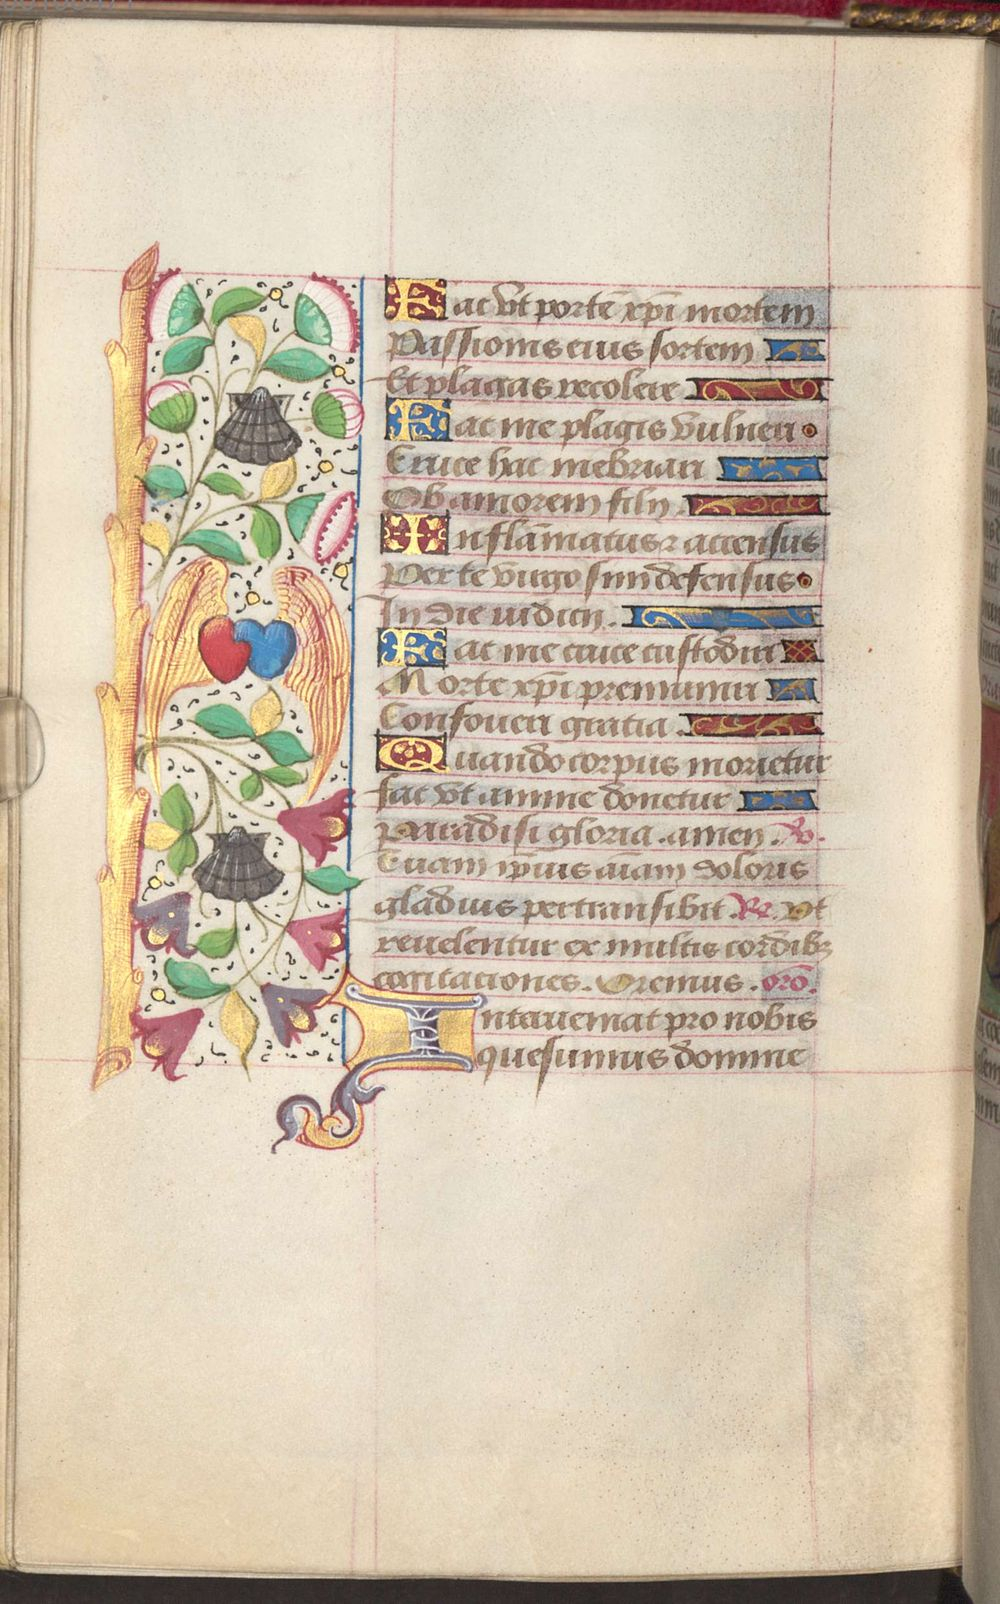 Fac vt portē xp̄i mortem
Passionis eius sortem
Et plagas recolere
Fac me plagis vulneri
Cruce hac inebriari
Ob amorem filij.
Inflāmatus ⁊ accensus
Per te virgo sim defensus
In die iudicij.
Fac me cruce custodiri
Morte xp̄i premuniri
Confoueri gratia.
Quando corpus morietur
fac vt anime donetur
Paradisi gloria. amen. V.
Tuam ip̄ius aīam doloris
gladius pertransibit. R. Vt
reuelentur ex multis cordibꝫ
cogitaciones. Oremus. orō.
Interueniat pro nobis
quesumus domine